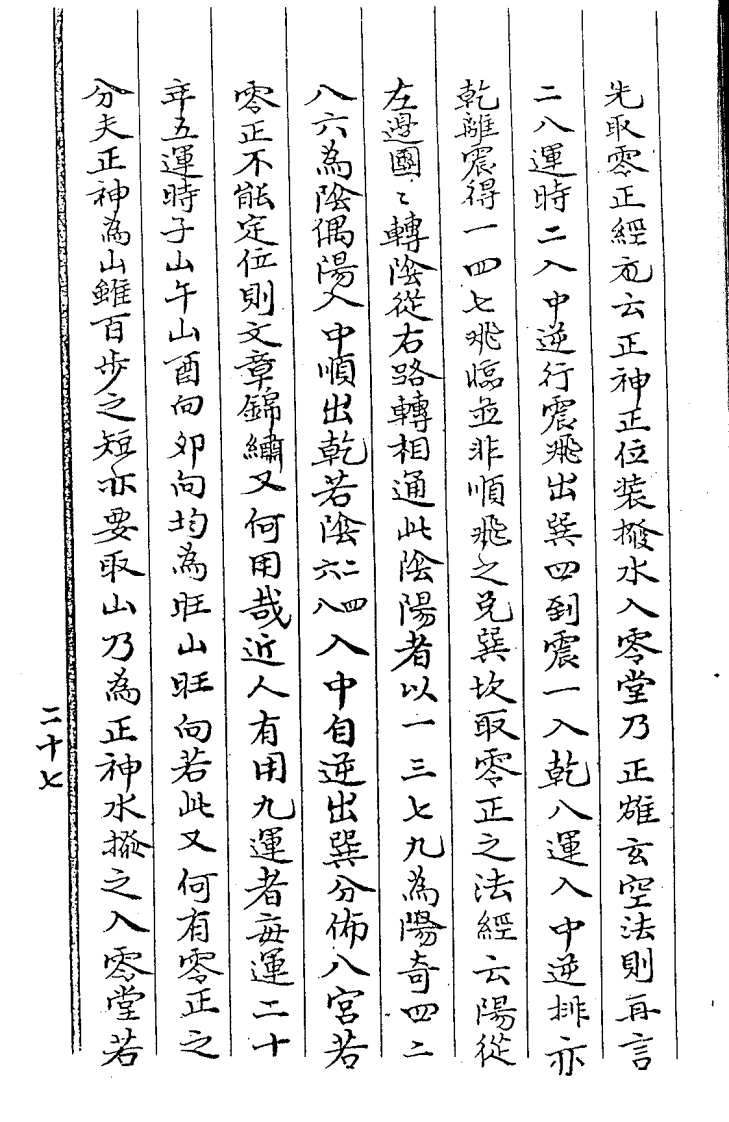 先取零正經亦云正神正位装撥水入零堂乃正雄玄空法則再言
二八運時二入中逆行震飛出巽四到震一入乾八運入中逆排亦
乾離震得一四七飛臨並非順飛之兌巽坎取零正之法經云陽從
左邊團〻轉陰從右路轉相通此陰陽者以一三七九為陽奇四二
八六為陰偶陽入中順出乾若陰二四六八入中自逆出巽分佈八宮若
零正不能定位則文章錦繡又何用哉近人有用九運者每運二十
年五運時子山午山酉向卯向均為旺山旺向若此又何有零正之
分夫正神為山雖百步之短亦要取山乃為正神水撥之入零堂若
二十七